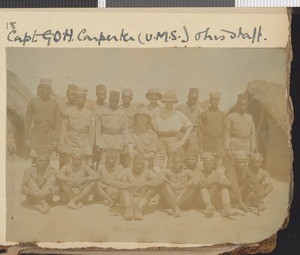 18
Capt G.D.H. Carpenter (U.M.S.) & his staff.